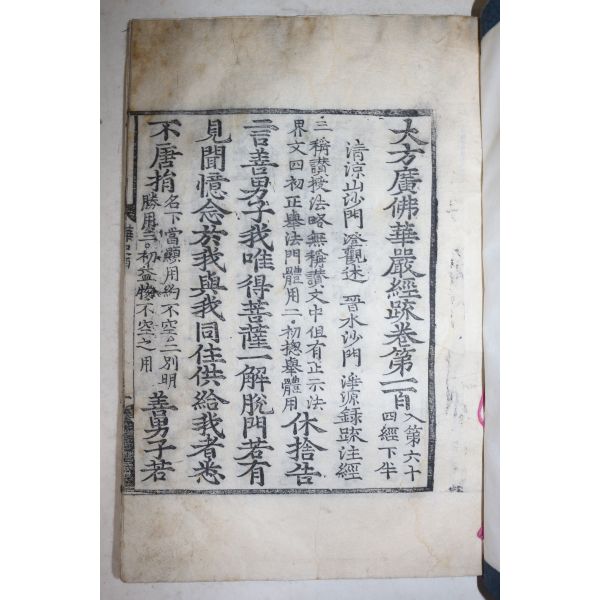 大方廣佛華嚴經疏卷第一百 入第六十
四經下半
清涼山沙門 澄觀述 晉水沙門 淨源錄疏注經
三稱讚授法略無稱讚文中但有正示法
界文四初正舉法門體用二初揔舉體用 休捨告
言善男子我唯得菩薩一解脫門若有
見聞憶念於我與我同住供給我者悉
不唐捐 名下當顯用為不空二別明
勝用三初益物不空之用 善男子若